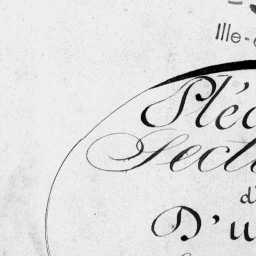 Ille-
Pléc
Secti
d
D'u